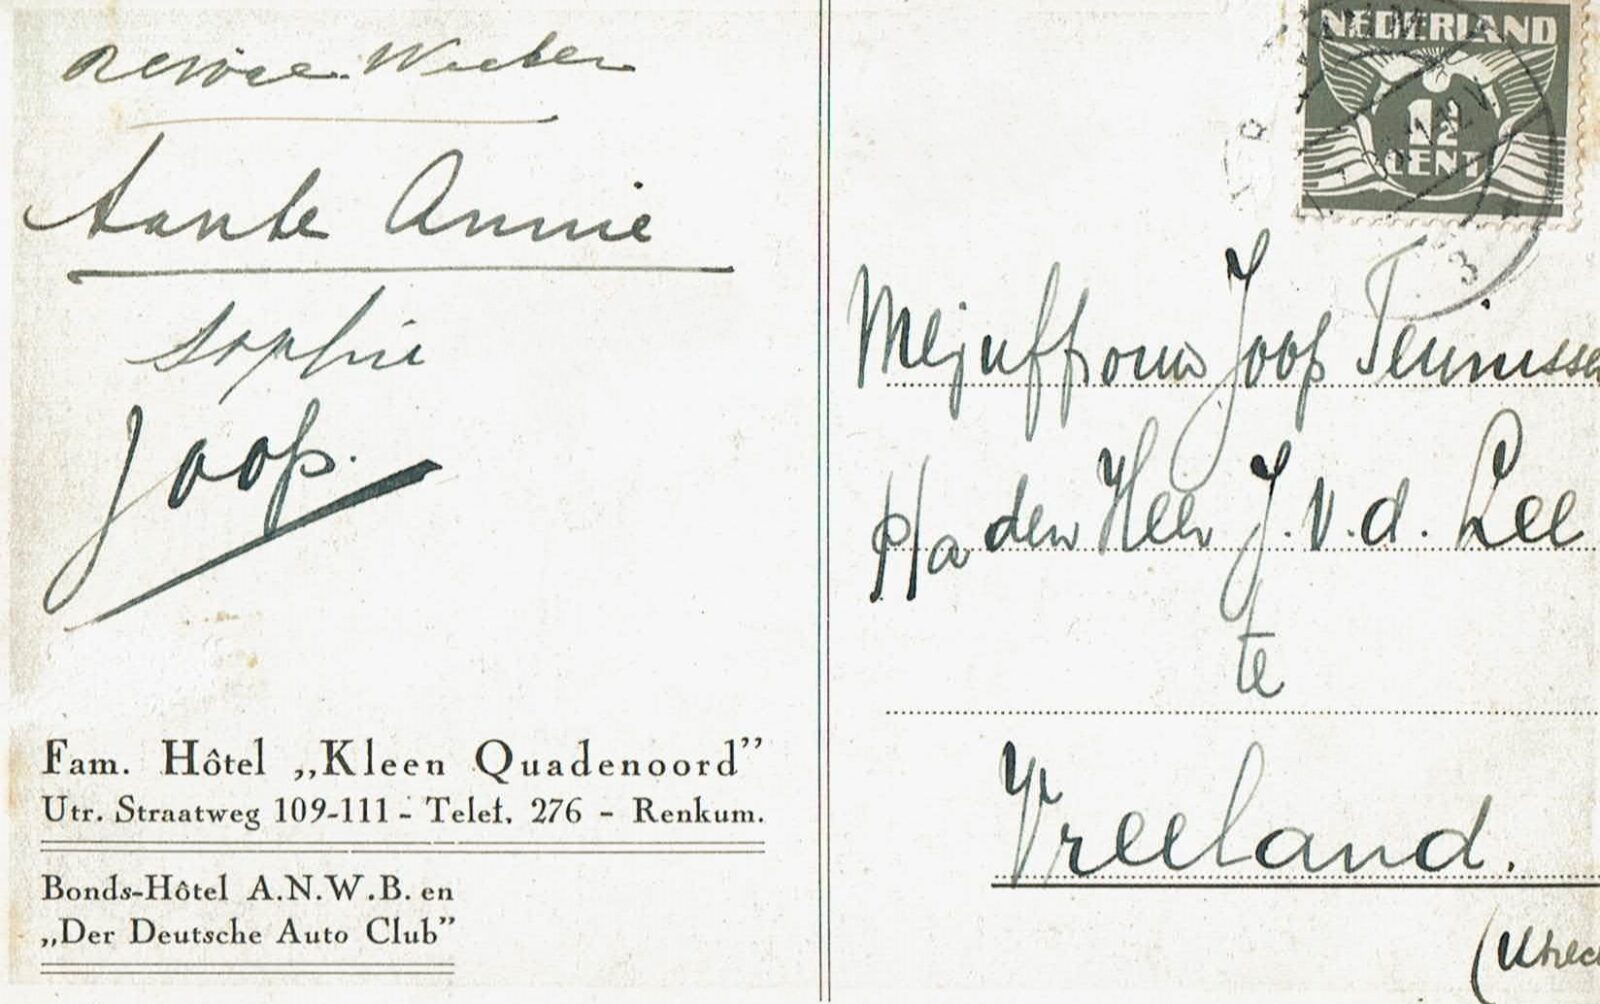 Tante Annie
Sophie
Joop.
Fam. Hôtel „Kleen Quadenoord”
Utr. Straatweg 109-111 - Telef. 276 - Renkum.
Bonds-Hôtel A.N.W.B. en
„Der Deutsche Auto Club”
NEDERLAND
1½
CENT
3
Mejuffrouw Joop Teunissen
p/a den Heer J. v. d. Lee
te
Vreeland.
(Utrec